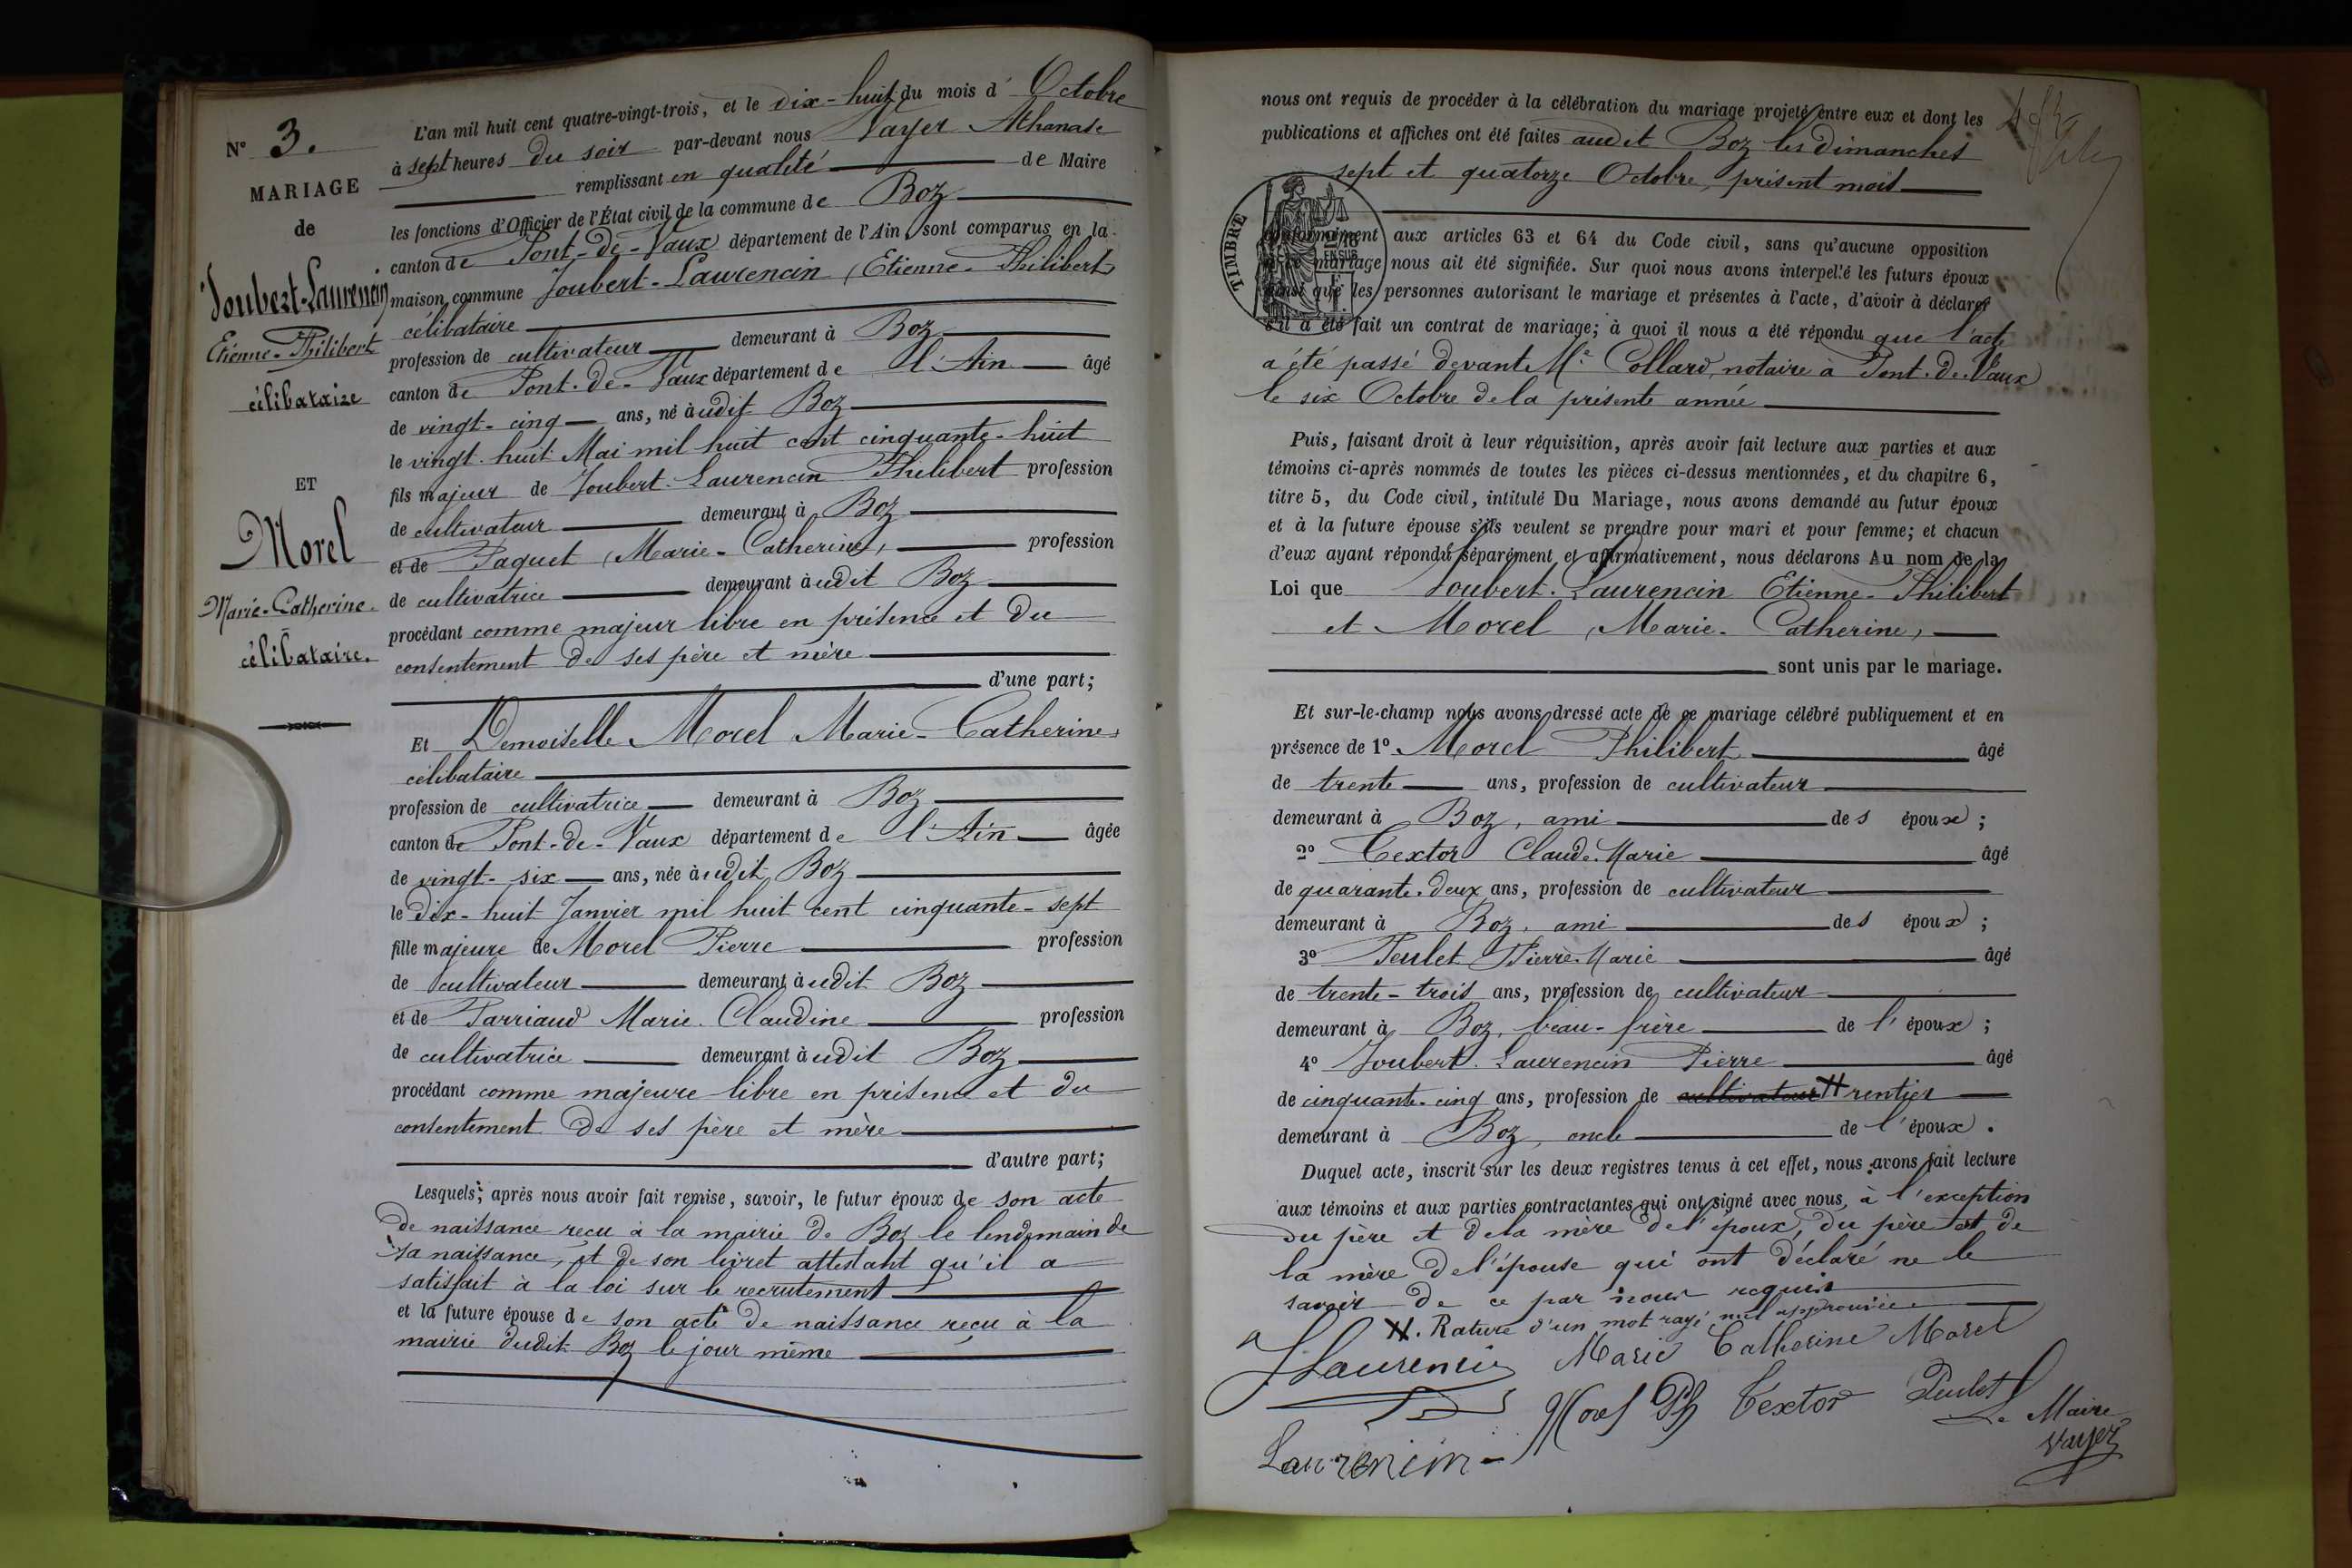 N° 3.
MARIAGE
de
Joubert-Laurencin
Etienne-Philibert
célibataire
ET
Morel
Marie-Catherine
célibataire.
L'an mil huit cent quatre-vingt-trois, et le dix-huit du mois d'Octobre
à sept heures du soir par-devant nous Vayer Athanase
remplissant en qualité de Maire
les fonctions d'Officier de l'État civil de la commune de Boz
canton de Pont-de-Vaux département de l'Ain, sont comparus en la
maison commune Joubert-Laurencin (Etienne-Philibert)
célibataire
profession de cultivateur demeurant à Boz
canton de Pont-de-Vaux département de l'Ain âgé
de vingt-cinq ans, né àudit Boz
le vingt-huit Mai mil huit cent cinquante-huit
fils majeur de Joubert-Laurencin Philibert profession
de cultivateur demeurant à Boz
et de Paquet (Marie-Catherine) profession
de cultivatrice demeurant àudit Boz
procédant comme majeur libre en présence et du
consentement de ses père et mère
d'une part;
Et Demoiselle Morel Marie-Catherine
célibataire
profession de cultivatrice demeurant à Boz
canton de Pont-de-Vaux département de l'Ain âgée
de vingt-six ans, née àudit Boz
le dix-huit Janvier mil huit cent cinquante-sept
fille majeure de Morel Pierre profession
de cultivateur demeurant àudit Boz
et de Parriaud Marie-Claudine profession
de cultivatrice demeurant àudit Boz
procédant comme majeure libre en présence et du
consentement de ses père et mère
d'autre part;
Lesquels, après nous avoir fait remise, savoir, le futur époux de son acte
de naissance reçu à la mairie de Boz le lendemain de
sa naissance, et de son livret attestant qu'il a
satisfait à la loi sur le recrutement
et la future épouse de son acte de naissance reçu à la
mairie dudit Boz le jour même
nous ont requis de procéder à la célébration du mariage projeté entre eux et dont les
publications et affiches ont été faites audit Boz les dimanches
sept et quatorze Octobre, présent mois
TIMBRE
conformément aux articles 63 et 64 du Code civil, sans qu'aucune opposition
à ce mariage nous ait été signifiée. Sur quoi nous avons interpellé les futurs époux
ainsi que les personnes autorisant le mariage et présentes à l'acte, d'avoir à déclarer
s'il a été fait un contrat de mariage; à quoi il nous a été répondu que l'acte
a été passé devant Me Collard, notaire à Pont-de-Vaux
le six Octobre de la présente année
Puis, faisant droit à leur réquisition, après avoir fait lecture aux parties et aux
témoins ci-après nommés de toutes les pièces ci-dessus mentionnées, et du chapitre 6,
titre 5, du Code civil, intitulé Du Mariage, nous avons demandé au futur époux
et à la future épouse s'ils veulent se prendre pour mari et pour femme; et chacun
d'eux ayant répondu séparément et affirmativement, nous déclarons Au nom de la
Loi que Joubert-Laurencin Etienne-Philibert
et Morel (Marie-Catherine)
sont unis par le mariage.
Et sur-le-champ nous avons dressé acte de ce mariage célébré publiquement et en
présence de 1° Morel Philibert âgé
de trente ans, profession de cultivateur
demeurant à Boz, ami des époux;
2° Textor Claude-Marie âgé
de quarante-deux ans, profession de cultivateur
demeurant à Boz, ami des époux;
3° Peulet Pierre-Marie âgé
de trente-trois ans, profession de cultivateur
demeurant à Boz, beau-frère de l'époux;
4° Joubert-Laurencin Pierre âgé
de cinquante-cinq ans, profession de cultivateur # rentier
demeurant à Boz, oncle de l'époux.
Duquel acte, inscrit sur les deux registres tenus à cet effet, nous avons fait lecture
aux témoins et aux parties contractantes qui ont signé avec nous, à l'exception
du père et de la mère de l'époux, du père et de
la mère de l'épouse qui ont déclaré ne le
savoir de ce par nous requis
#. Rature d'un mot rayé nul approuvée.
JLaurencin Marie Catherine Morel
Morel Ph Textor Peulet
Le Maire
Laurencin
Vayer